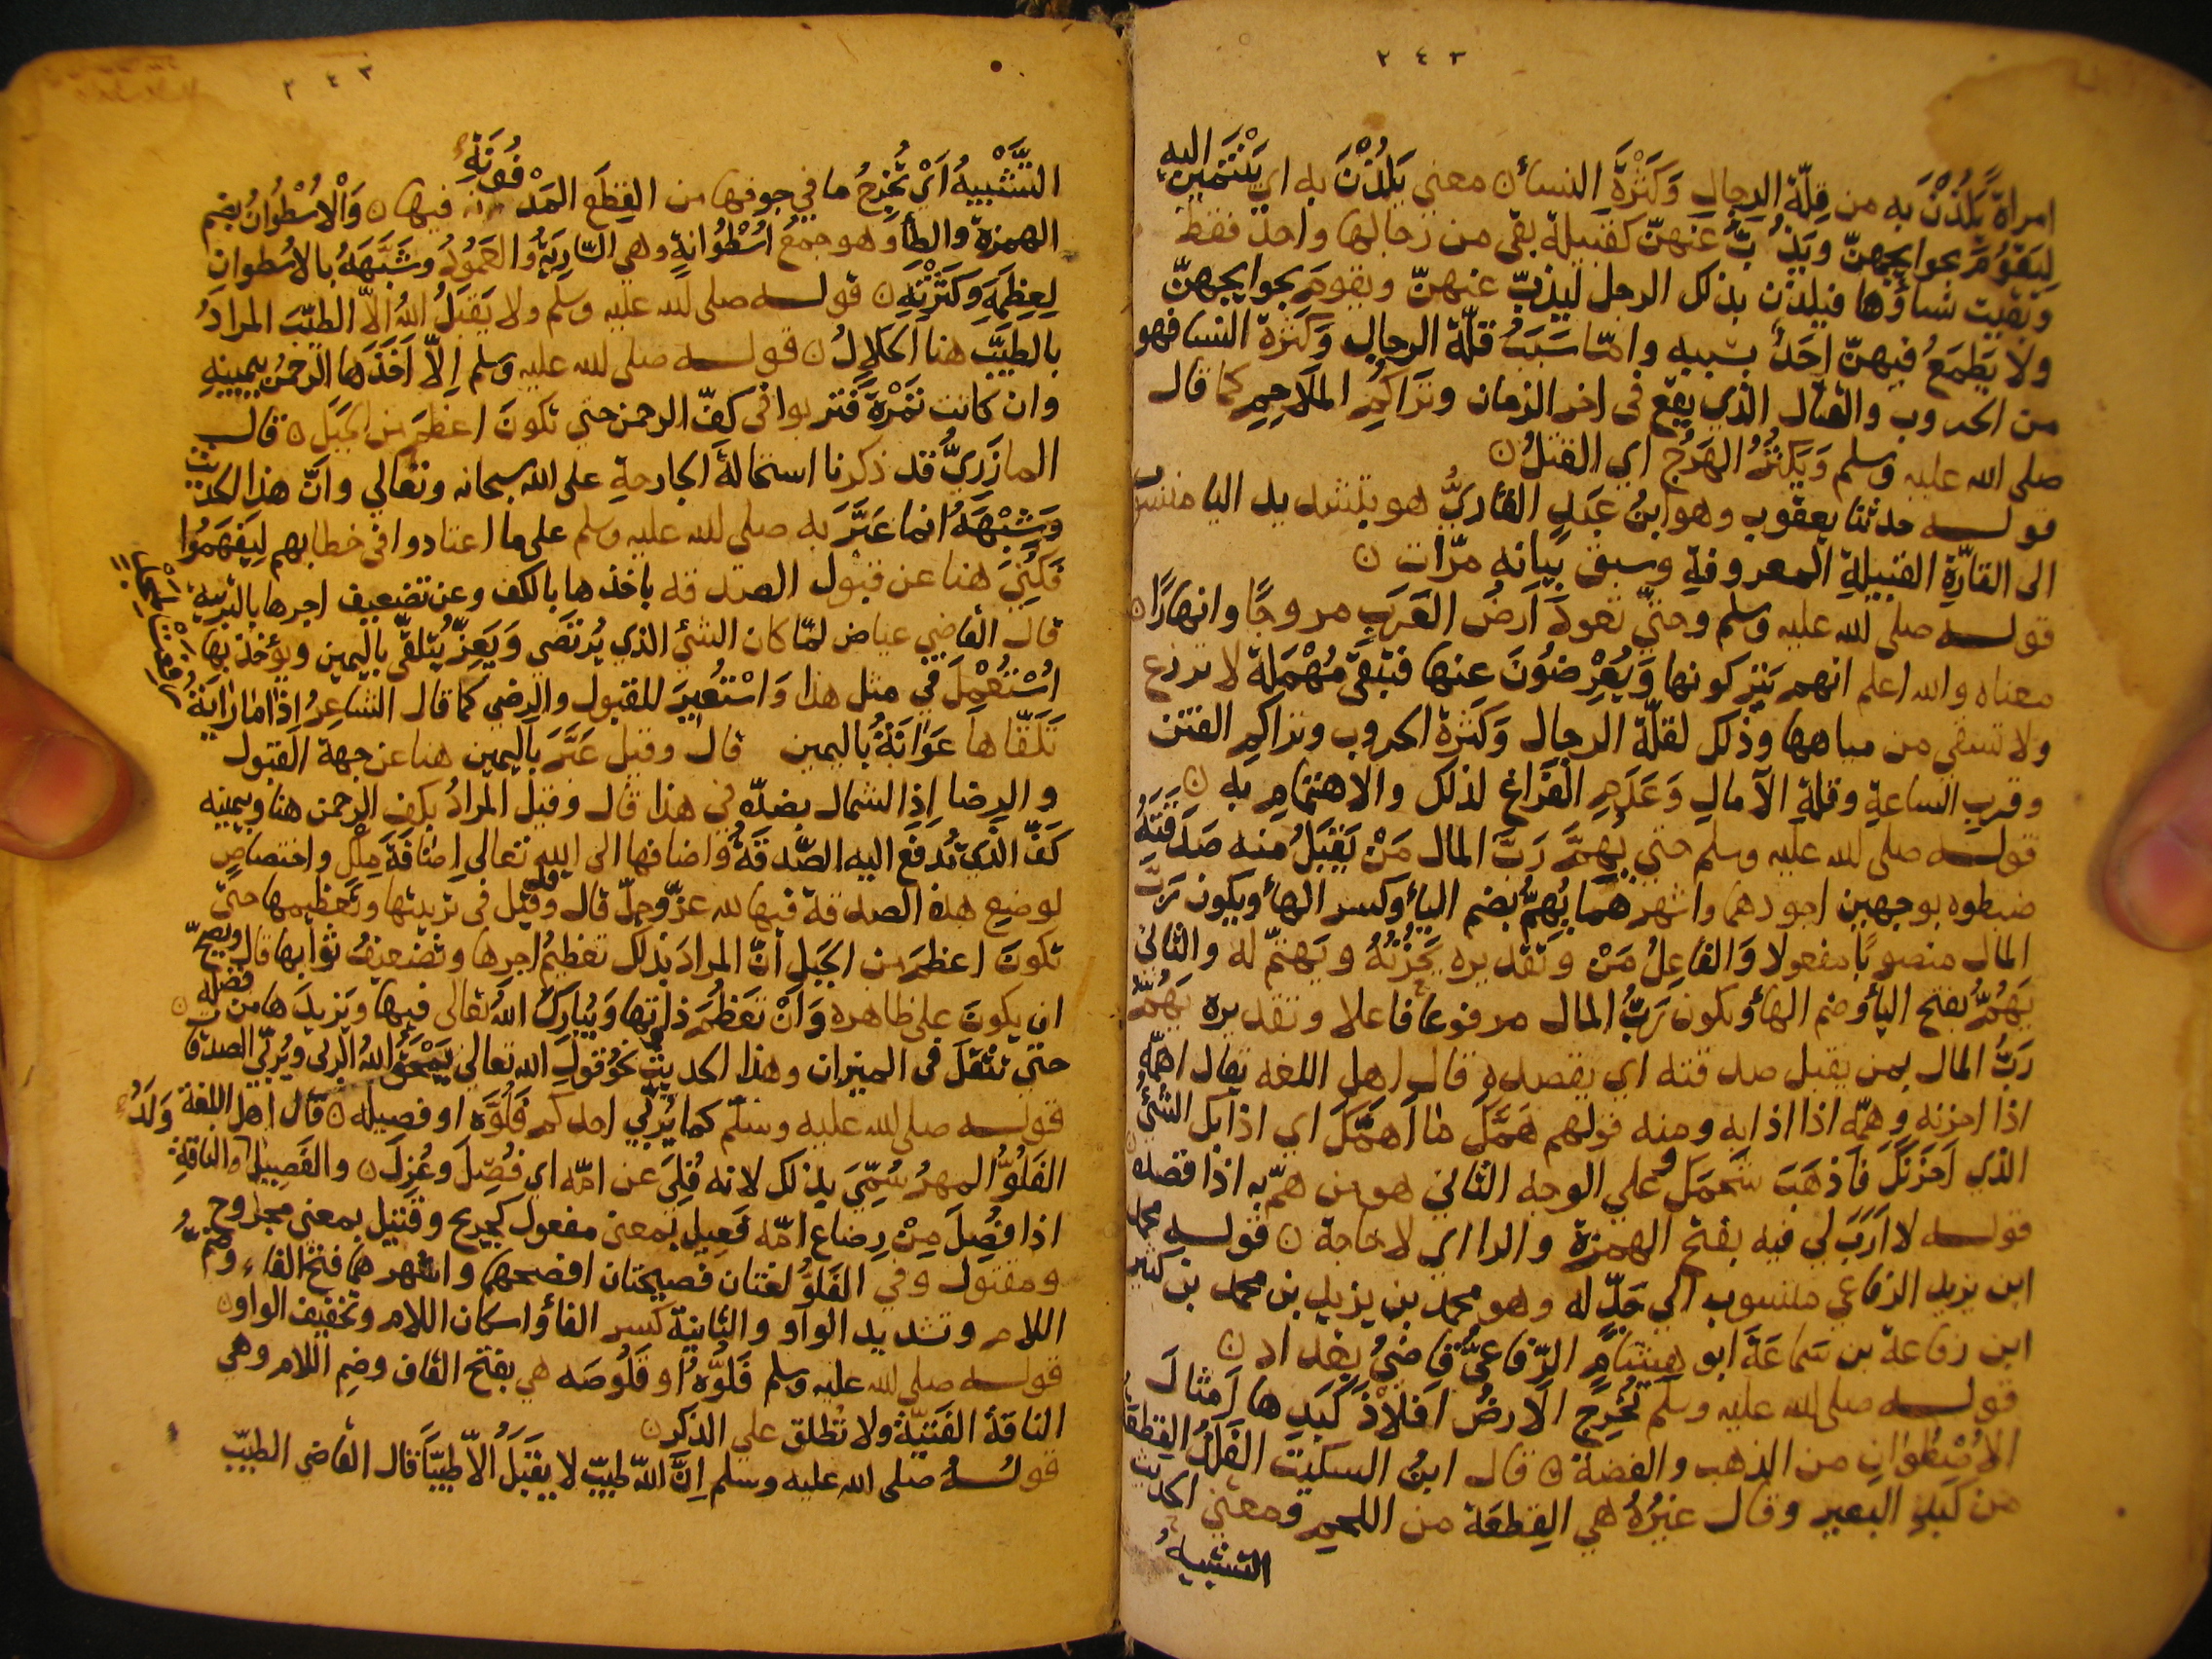 ٢٤٣
امراةً يَلُذْنَ به من قِلّة الرجال وَكَثْرَةِ النساء ن معنى يَلُذْنَ به اي يَنْتَمِينَ اليه
لِيَقُوْمَ بحوايجهنّ ويَذُبّ عَنهنّ كقبيلة بقى من رجالها واحدٌ فقط
وبقيت نساؤها فيلذن بذلك الرجل ليذبّ عنهنّ ويقومَ بحوايجهنّ
ولا يَطمَعُ فيهنّ احَدٌ بسببه وامّا سَبَبُ قلّة الرجال وَكثرة النسا فهو
من الحروب والقتال الذي يقع فى اخر الزمان وتَراكُمِ المَلاحِمِ كما قال
صلى الله عليه وسلم وَيَكثُرُ الهَرْجُ اي القتلُ ن
قولـــه حدثنا يعقوب وهو ابنُ عَبدِ القاريُّ هو بتشديد اليا منسوب
الى القَارّةِ القبيلةِ المعروفةِ وسبق بيانه مرّات ن
قولـــه صلى لله عليه وسلم وحتى تعودَ اَرضُ العَرَبِ مروجًا وانهارًا ن
معناه والله اعلم انهم يَتركونها وَيُعْرِضُونَ عنها فتبقى مُهْمَلة لا تزرع
ولا تسقى من مياهها وذلك لقلّة الرجال وَكَثرة الحروب وتراكم الفتن
وقربِ الساعةِ وقلةِ الآمالِ وَعَدَمِ الفَرَاغِ لذلك والاهتمامِ به ن
قولـــه صلى لله عليه وسلم حتى يُهِمَّ رَبَّ المال مَنْ يَقبَلُ منه صَدَقَتَهُ
ضبطوه بوجهين اجودهما واشهرهُمَا يُهِمُّ بضم الياء وكسر الهاء ويكون رَبَّ
المال منصوبًا مفعولا وَالفاعِلُ مَنْ وتقديره يَحْزُنُهُ ويَهتمّ له والثانى
يَهُمُّ بفتح الياء وضم الهاء ويكون رَبُّ المال مرفوعًا فاعلا وتقديره يَهُمُّ
رَبُّ المال بمن يقبل صدقته اي يقصده قال اهل اللغه يقال اهمّه
اذا احزنه وهمّه اذا اذابه ومنه قولهم هَمَّكَ ما اَهَمَّكَ اي اذابك الشئُ
الذي اَحْزَنَكَ فَاَذهَبَ شَحمَكَ وعلى الوجه الثانى هو من همّ به اذا قصده
قولـــه لا اَرَبَ لي فيه بفتح الهمزة والرا اي لا حاجة ن قولـــه محمد
ابن يزيد الرفاعي منسوب الى جَدٍّ له وهو محمد بن يزيد بن محمد بن كثير
ابن رفاعة بن سَمَاعَة ابو هِشامٍ الرِّفاعىُّ قاضيُ بغداد ن
قولـــه صلى لله عليه وسلم تُخرِجُ الاَرضُ اَفلاَذَ كَبِدِها اَمثالَ
الاُسْطُوَانِ من الذهب والفضة ن قال ابنُ السكيت الفَلَذُ القِطعَة
من كَبِدِ البعير وقال غيرُهُ هي القِطعَة من اللحمِ ومعنى الحديث
التشبيه
٢٤٣
التَّشْبِيهُ اَيْ تُخْرِجُ ما في جوفها من القِطَعِ المَدْفُونَةِ فيها ن وَالْاُسْطُوانُ بضم
الهمزة والطاء وهو جمعُ اُسْطُوَانةٍ وهي السّارِيَةُ وَالعَمُودُ وشَبَّهَهُ بالاسطوان
لِعِظَمِهِ وَكَثْرَتِهِ ن قولـــه صلى لله عليه وسلم ولا يَقبَلُ اللهُ الاّ الطيّبَ المرادُ
بالطيّب هنا الحَلالُ ن قولـــه صلى لله عليه وسلم اِلاّ اَخَذَهَا الرحمنُ بيمينهِ
وان كانت تَمْرَةً فتربوا فى كفّ الرحمن حتى تكونَ اعظمَ من الجَبَل ن قال
المازَرِيُّ قد ذكرنا استحالةَ الجارحةِ على الله سبحانه وتعالى وانّ هذا الحديث
وَشِبْهَهُ انما عَبَّرَ به صلى لله عليه وسلم على ما اعتادوا فى خطابهم لِيَفْهَمُوا
فكَنّى هنا عن قبول الصدقه باخذها بالكف وعن تضعيف اجرها بالتربية
قال القاضي عياض لمّا كان الشئ الذي يُرتَضى وَيَعِزّ يُتلقّى باليمين ويؤخذ بها
اُسْتُعْمِلَ فى مثل هذا وَاسْتُعِيرَ للقبول والرضى كما قال الشاعِرُ اِذا ما رَايَةٌ رُفِعَتْ لِمَجْدٍ
تَلَقَّاهَا عَوَابَةُ باليمين قال وقيل عَبَّرَ باليمين هنا عن جهة القبول
والرضا اِذ الشمال بضدّه فى هذا قال وقيل المرادُ بكف الرحمن هنا وبيمينه
كَفّ الذي تُدفَع اليه الصّدقَةُ واضافها الى الله تعالى اِضافَةَ مِلْكٍ واختصاصٍ
لوضعِ هذه الصدقة فيها لله عزّ وجلّ قال وقد قيل فى تربيتها وتَعظيمها حتى
تكونَ اعظمَ من الجَبَلِ اَنّ المرادَ بذلك تعظيمُ اجرها وتضعيفُ ثوابها قال ويصحّ
ان يكونَ على ظاهره وَاَنْ تَعظُمَ ذاتها وَيُبارِكُ اللهُ تعالى فيها ويَزيدَها من فضله
حتى تثقلَ فى الميزان وهذا الحديث نحو قولِ الله تعالى يَمْحَقُ اللهُ الربى ويُربّى الصدقات
قولـــه صلى لله عليه وسلّم كما يُرَبّي احدكم فَلُوَّه او فصيله ن قال اهل اللغة
الفَلُوُّ المهرُ سُمِّيَ بذلك لانه فُلِيَ عن امّه اي فُصِّلَ وعُزِلَ ن والفَصِيلُ وَلَدُ الناقةِ
اذا فُصِلَ مِنْ رِضاعِ امّه فَعِيل بمعنى مفعول كجريح وقتيل بمعنى مجروح
ومقتول وفى الفَلُوِّ لغتان فصيحتان افصحهما واشهرهما فتح الفاء وضمُّ
اللام وتشديد الواو والثانية كسر الفاء واسكان اللام وتخفيف الواو ن
قولـــه صلى لله عليه وسلم فَلُوَّهُ او قَلُوصَه هي بفتح القاف وضم اللام وهي
الناقة الفَتِيّة ولا تُطلق على الذكر ن
قولـــهُ صلى الله عليه وسلم اِنَّ اللهَ طيبٌ لا يقبَلُ اِلاّ طيبًا قال القاضى الطيبُ